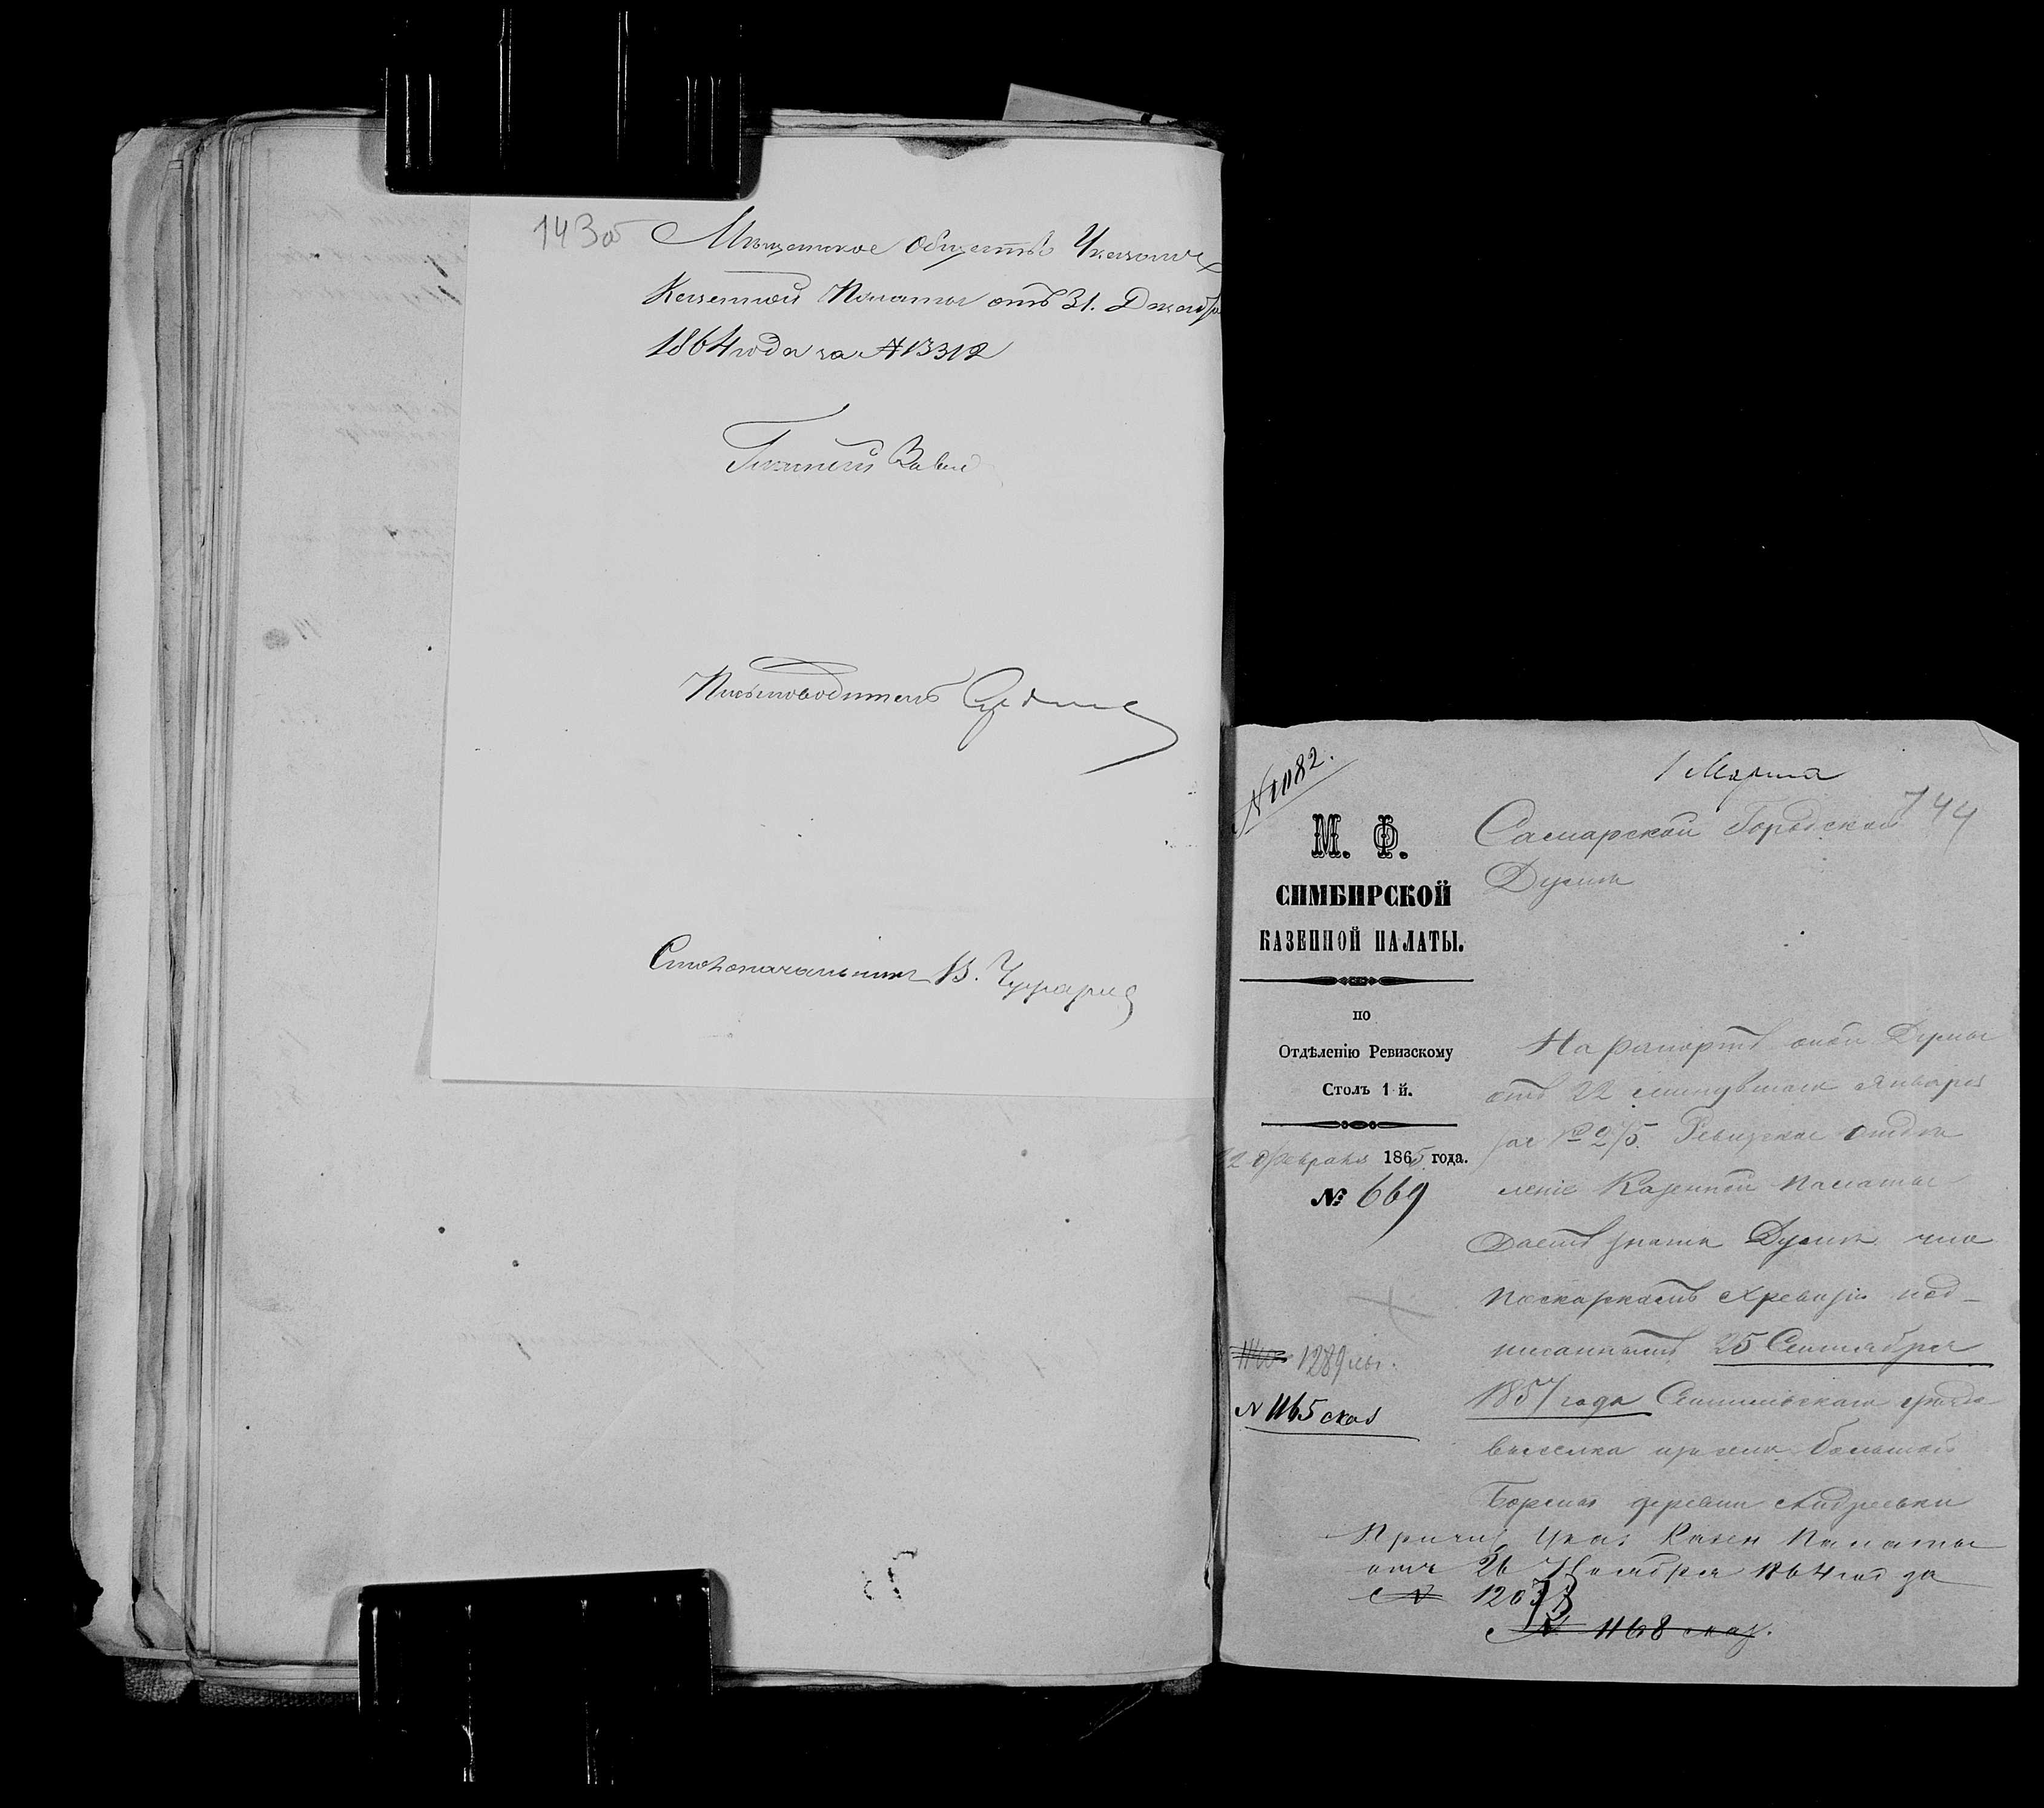 143об
Мѣщанское Общество Указомъ
Казенной Палаты отъ 31. Декабря
1864 года за № 13312
Гласный
Письмоводитель
Столоначальникъ В.
№ 1082.
1 Марта
144
М. Ф.
СИМБИРСКОЙ
КАЗЕННОЙ ПАЛАТЫ.
по
Отдѣленію Ревизскому
Столъ 1 й.
12 Февраля 1865 года.
№ 669
1289
№ 1165 сказ
Самарской Городской
Думѣ
На рапортъ оной Думы
отъ 22 минувшаго Января
за № 275. Ревизское отдѣ
леніе Казенной Палаты
даетъ знать Думѣ что
по сказкамъ X ревизіи под-
писаннымъ 25 Сентября
1857 года уѣзда
выселка изъ села Большой
Борлы деревни Андреевки
Причис Указ Казен Палаты
отъ 26 Ноября 1864 год за
№ 12038
№ 1168 сказ.